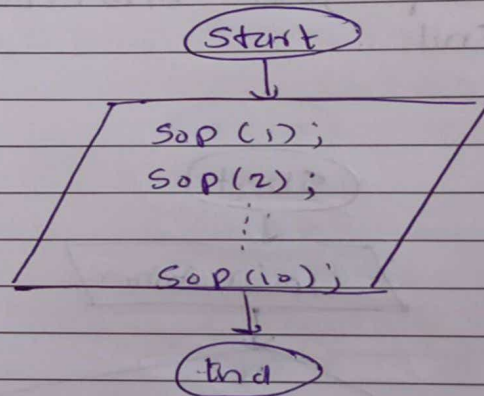 Start
Sop (1);
Sop (2);
Sop (10);
End